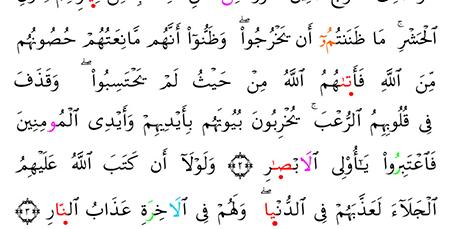 ٱلْحَشْرِ ۚ مَا ظَنَنتُمُۥٓ أَن يَخْرُجُوا۟ ۖ وَظَنُّوٓا۟ أَنَّهُم مَّانِعَتُهُمْ حُصُونُهُم
مِّنَ ٱللَّهِ فَأَتَىٰهُمُ ٱللَّهُ مِنْ حَيْثُ لَمْ يَحْتَسِبُوا۟ ۖ وَقَذَفَ
فِى قُلُوبِهِمُ ٱلرُّعْبَ ۚ يُخْرِبُونَ بُيُوتَهُم بِأَيْدِيهِمْ وَأَيْدِى ٱلْمُومِنِينَ
فَٱعْتَبِرُوا۟ يَٰٓأُو۟لِى ٱلَابْصَٰرِ ﴿٢﴾ وَلَوْلَآ أَن كَتَبَ ٱللَّهُ عَلَيْهِمُ
ٱلْجَلَآءَ لَعَذَّبَهُمْ فِى ٱلدُّنْيَا ۖ وَلَهُمْ فِى ٱلَاخِرَةِ عَذَابُ ٱلنَّارِ ﴿٣﴾